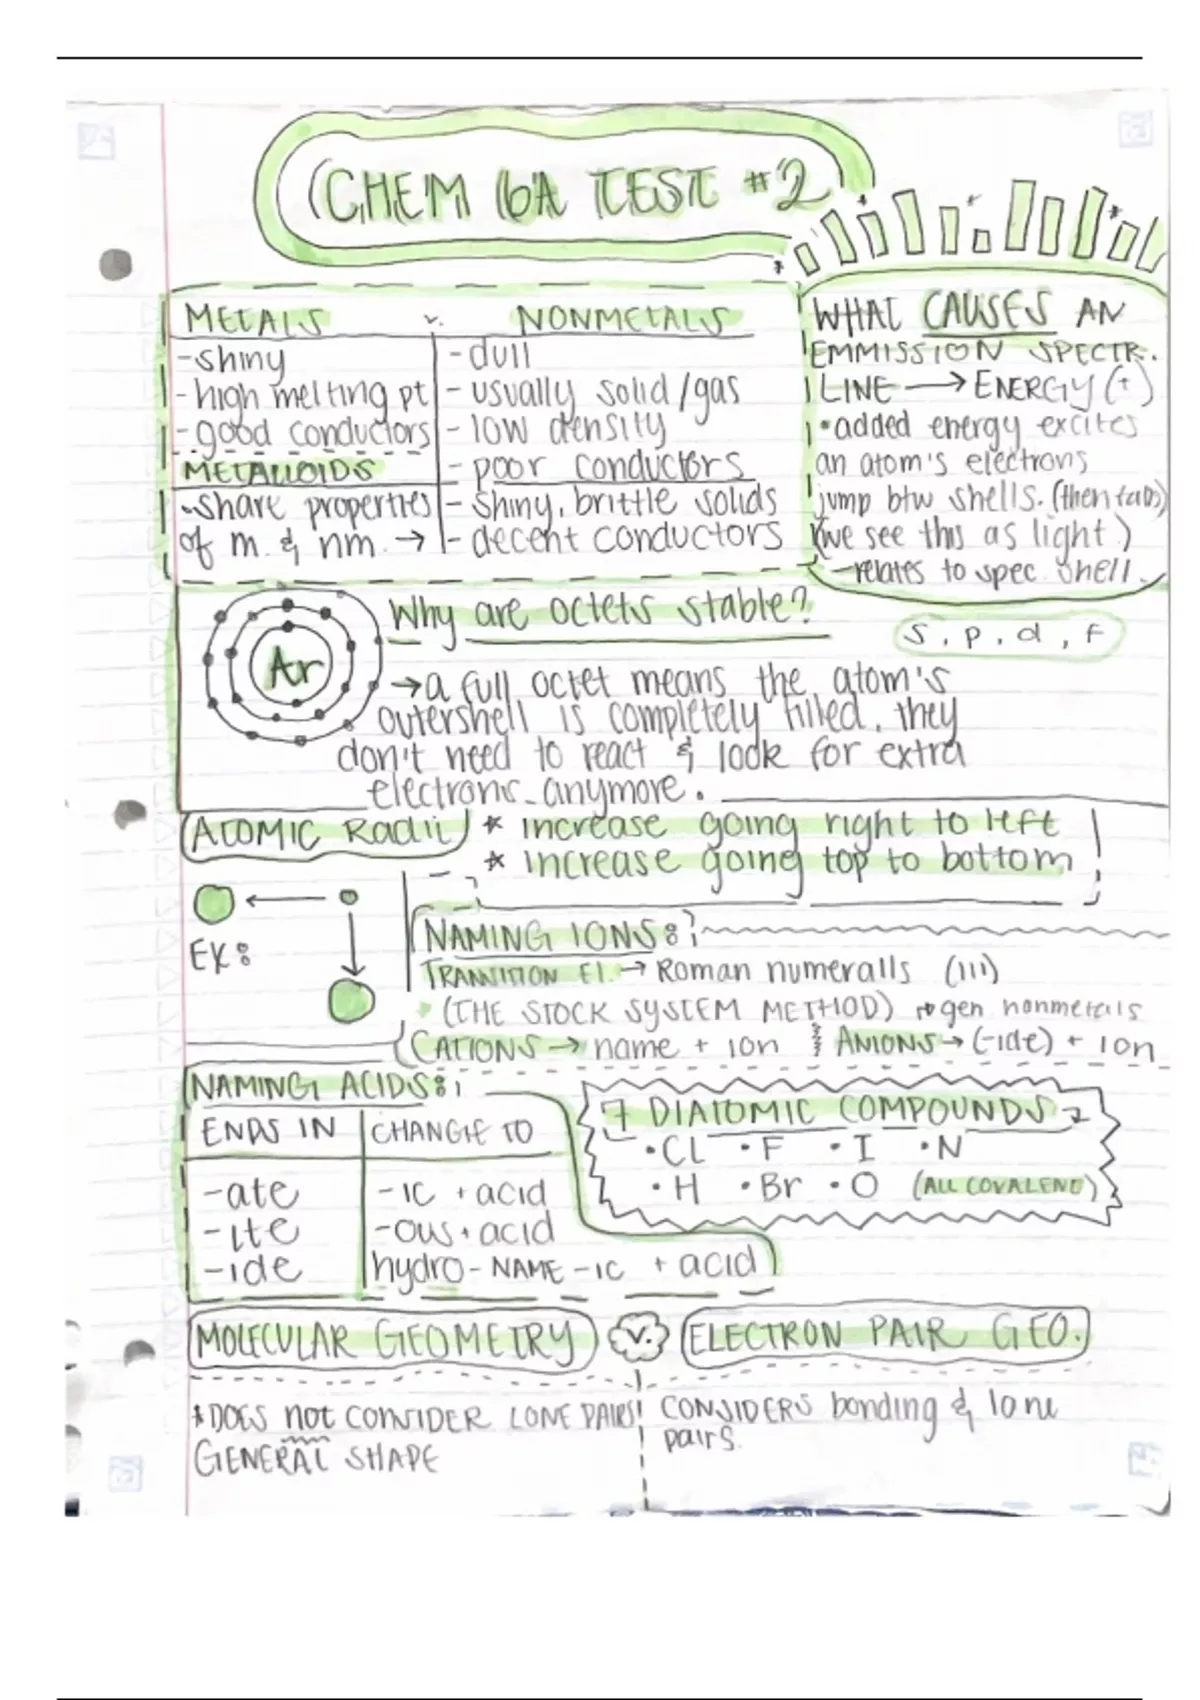 CHEM 6A TEST #2
METALS v. NONMETALS
-shiny
-high melting pt
-good conductors
-dull
-usually solid/gas
-low density
-poor conductors
METALLOIDS
-share properties
of m. & nm. →
-shiny, brittle solids
-decent conductors
WHAT CAUSES AN
EMMISSION SPECTR.
LINE → ENERGY (+)
•added energy excites
an atom's electrons
jump btw shells. (then
(we see this as light.)
-relates to spec. shell.
s, p, d, f
Ar
Why are octets stable?
→a full octet means the atom's
outershell is completely filled. they
don't need to react & look for extra
electrons anymore.
ATOMIC Radii
* increase going right to left
* increase going top to bottom
EX:
NAMING IONS:
TRANSITION El. → Roman numeralls (III)
(THE STOCK SYSTEM METHOD) → gen nonmetals
CATIONS → name + ion
ANIONS → (-ide) + ion
NAMING ACIDS:
ENDS IN | CHANGE TO
-ate | -ic + acid
-ite | -ous + acid
-ide | hydro-NAME-ic + acid
7 DIATOMIC COMPOUNDS
•Cl •F •I •N
•H •Br •O (ALL COVALENT)
MOLECULAR GEOMETRY v. ELECTRON PAIR GEO.
*DOES not CONSIDER LONE PAIRS!
GENERAL SHAPE
CONSIDERS bonding & lone
pairs.